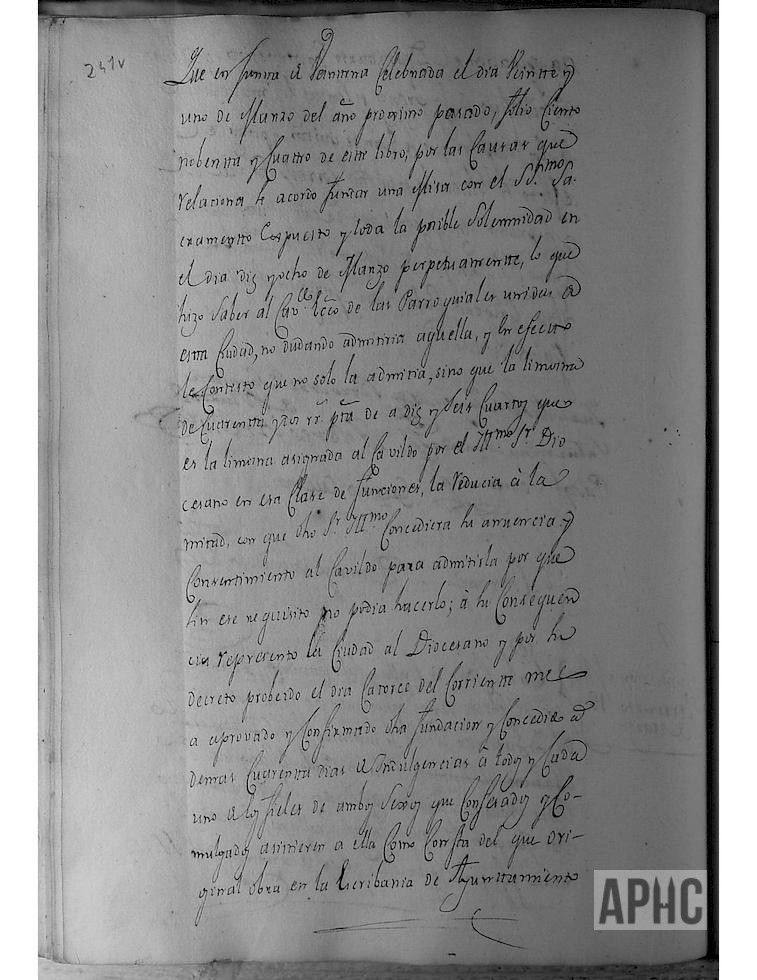 241v
Que en Junta a Pantina Celebrada el dia Veintte y
uno de Marzo del año proximo pasado, folio Ciento
nobentta y Cuattro de este libro, por las Causas que
relaciona se acordo fundar una Misa con el SS.mo Sa-
cramentto Espuesto y toda la posible Solemnidad en
el dia diez y ocho de Marzo perpetuamentte, lo que
hizo Saber al Cav.do Ecco de las Parroquiales unidas a
estta Ciudad, no dudando admitiria aquella, y en efecto
le Contesto que no solo la admitia, sino que la limosna
de Cuarentta y dos rr.s ptta de a diez y Seis Cuartos que
es la limosna asignada al Cavildo por el Ill.mo Sr. Dio
cesano en esa Clase de funciones, la reducia à la
mitad, con que dho Sr. Ill.mo Concediera su anuencia y
Consentimiento al Cavildo para admitirla por que
sin ese requisito no podia hacerlo; à su Consequen
cia represento la Ciudad al Diocesano y por su
decreto probeido el dia Catorce del Corriente mes
a aprovado y Confirmado dha fundacion y Concedido a
demas Cuarentta dias de Indulgencias à todos y Cada
uno de los fieles de ambos Sexos que Confesados y Co-
mulgados asistieren a ella Como Consta del que ori-
ginal obra en la Escribania de Ayunttamiento
APHC